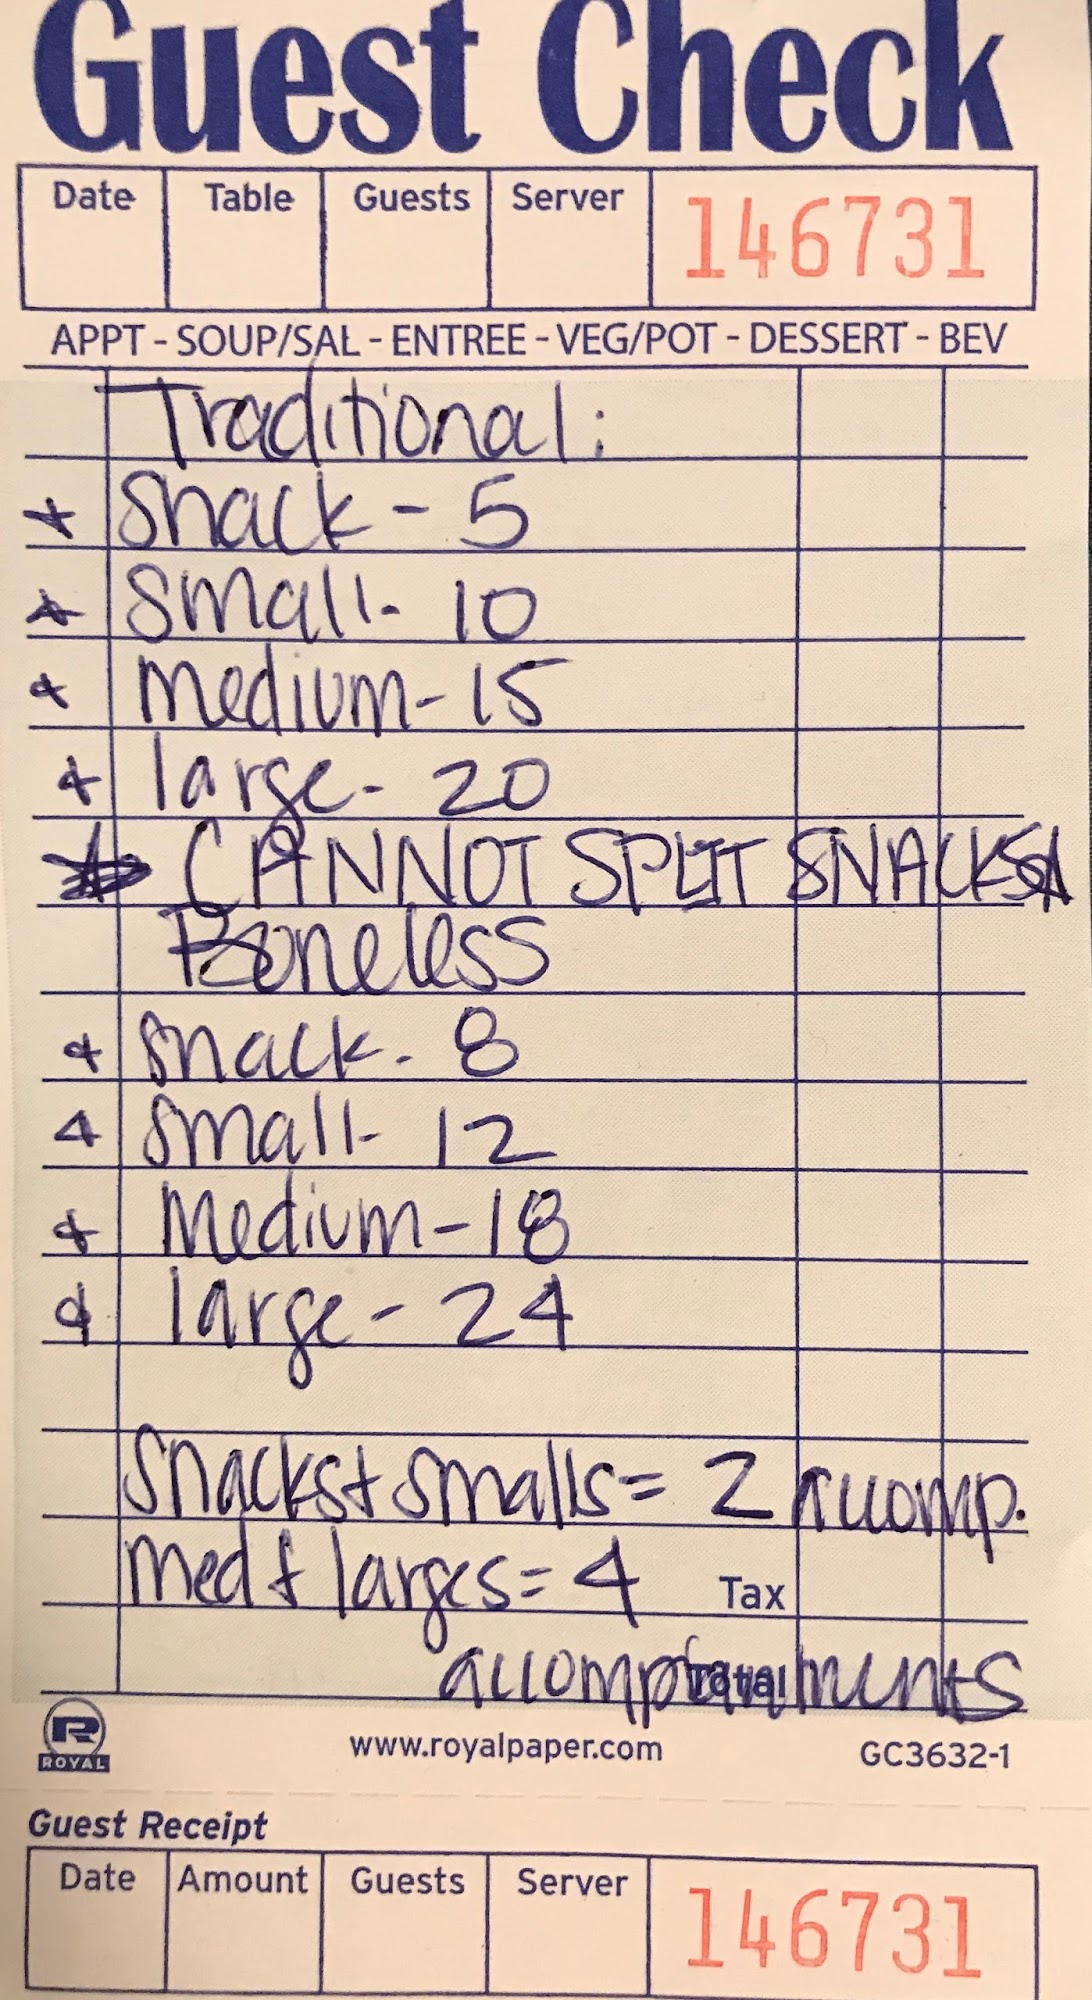 Guest Check
Date Table Guests Server 146731
APPT - SOUP/SAL - ENTREE - VEG/POT - DESSERT - BEV
Traditional:
Snack - 5
Small - 10
medium - 15
large - 20
CANNOT SPLIT SNACKS
Boneless
Snack - 8
Small - 12
Medium - 18
large - 24
Snacks + Smalls = 2 accomp.
Med + larges = 4
Tax
Total
ROYAL
www.royalpaper.com GC3632-1
Guest Receipt
Date Amount Guests Server 146731